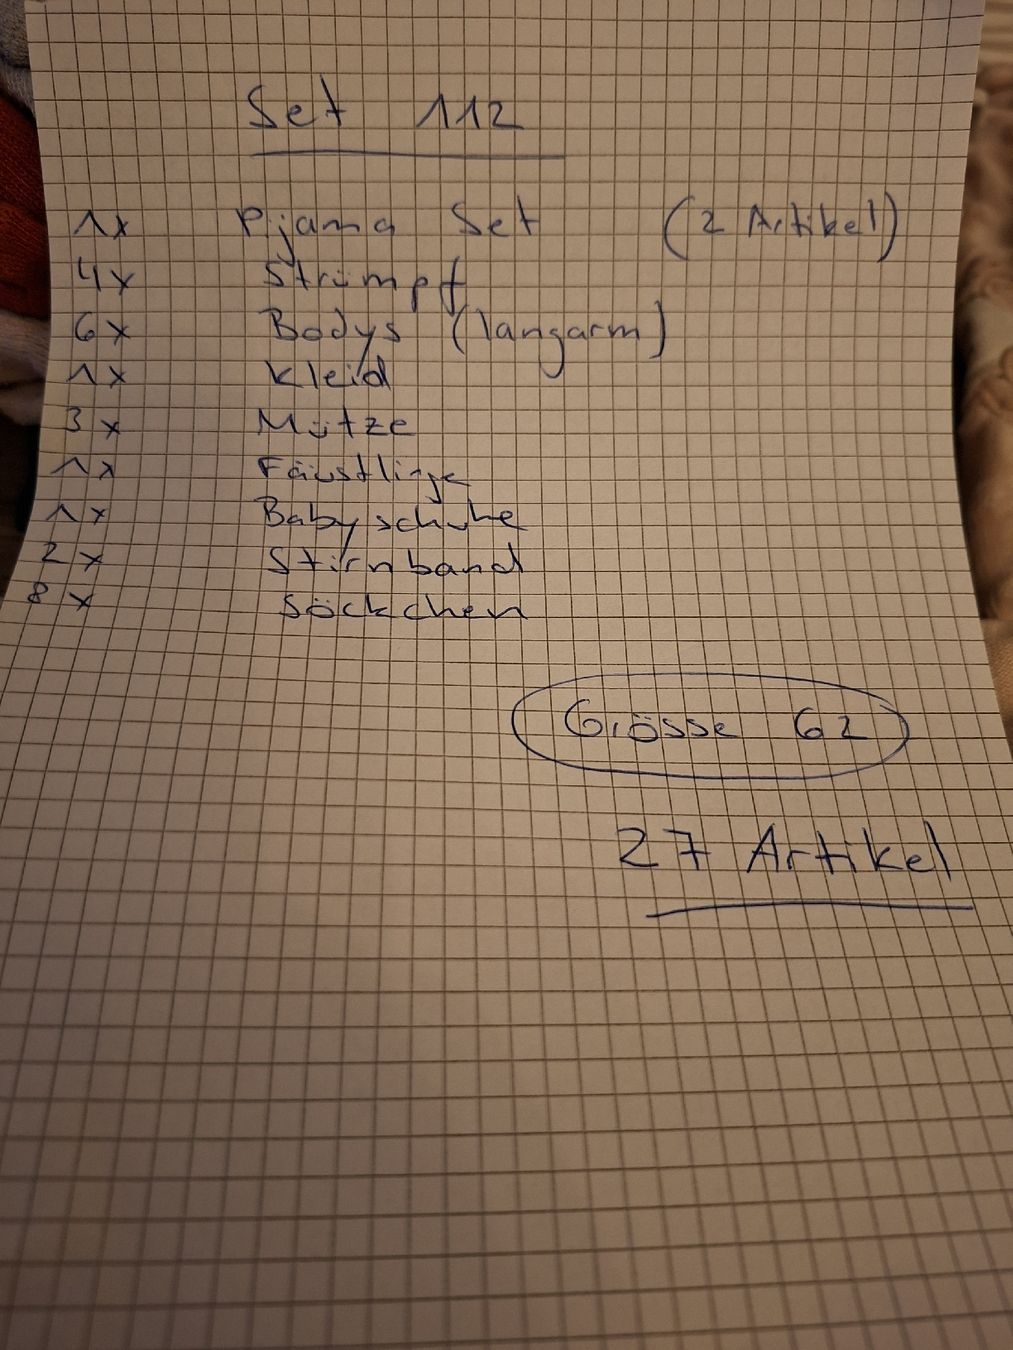 Set 112
1x Pjama Set (2 Artikel)
4x Strümpf
6x Bodys (langarm)
1x Kleid
3x Mütze
1x Fäustlinge
1x Babyschuhe
2x Stirnband
8x Söckchen
Grösse 62
27 Artikel